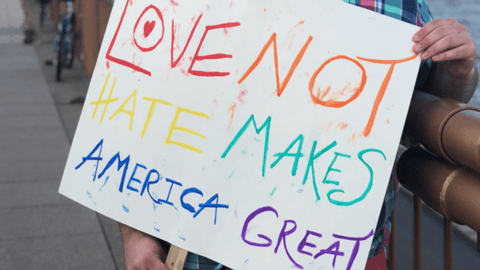 LOVE NOT
HATE MAKES
AMERICA GREAT